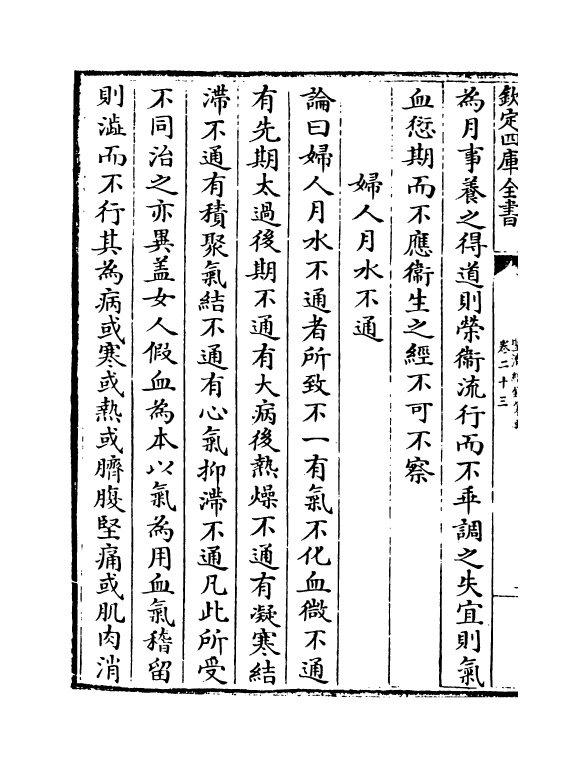 欽定四庫全書
卷二十三
為月事養之得道則榮衞流行而不乖調之失宜則氣
血愆期而不應衞生之經不可不察
婦人月水不通
論曰婦人月水不通者所致不一有氣不化血微不通
有先期太過後期不通有大病後熱燥不通有凝寒結
滯不通有積聚氣結不通有心氣抑滯不通凡此所受
不同治之亦異盖女人假血為本以氣為用血氣稽留
則澁而不行其為病或寒或熱或臍腹堅痛或肌肉消